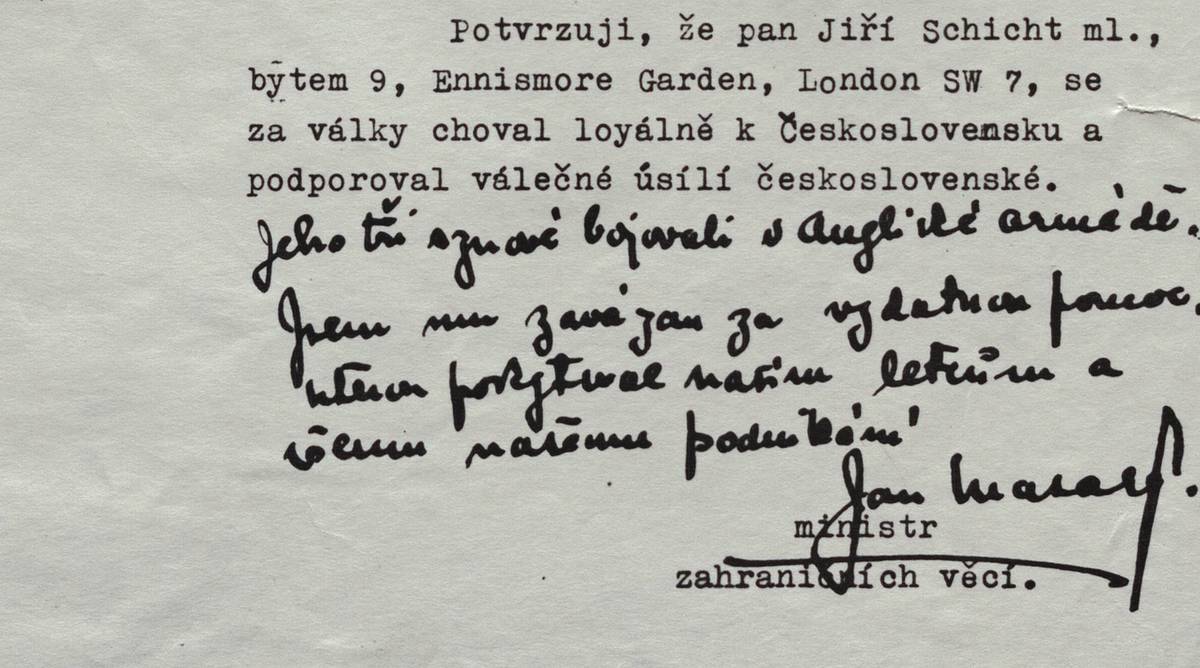 Potvrzuji, že pan Jiří Schicht ml.,
bytem 9, Ennismore Garden, London SW 7, se
za války choval loyálně k Československu a
podporoval válečné úsílí československé.
Jeho tři synové bojovali v Anglické armádě.
Jsem mu zavázan za vydatnou pomoc,
kterou poskytoval našim letcům a
všemu našemu podnikání
Jan Masaryk.
ministr
zahraničních věcí.